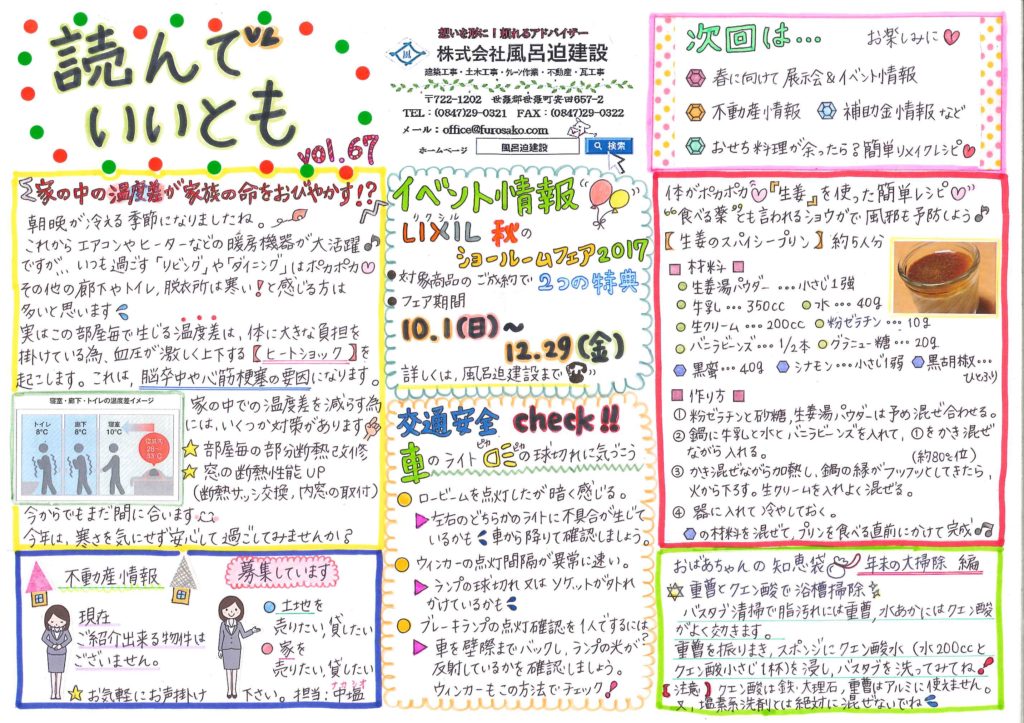 読んで
いいとも
vol.67
想いを形に!頼れるアドバイザー
株式会社風呂迫建設
建築工事・土木工事・クレーン作業・不動産・瓦工事
〒722-1202 世羅郡世羅町安田657-2
TEL:(0847)29-0321 FAX:(0847)29-0322
メール:office@furosako.com
ホームページ 風呂迫建設 検索
次回は… お楽しみに
春に向けて展示会&イベント情報
不動産情報 補助金情報など
おせち料理が余ったら?簡単リメイクレシピ
家の中の温度差が家族の命をおびやかす!?
朝晩が冷える季節になりましたね。
これからエアコンやヒーターなどの暖房機器が大活躍
ですが…いつも過ごす「リビング」や「ダイニング」はポカポカ
その他の廊下やトイレ,脱衣所は寒い!と感じる方は
多いと思います
実はこの部屋毎で生じる温度差は、体に大きな負担を
掛けている為、血圧が激しく上下する【ヒートショック】を
起こします。これは、脳卒中や心筋梗塞の要因になります。
寝室・廊下・トイレの温度差イメージ
トイレ 8℃
廊下 8℃
寝室 10℃
家の中での温度差を減らす為
には、いくつか対策があります
部屋毎の部分断熱改修
窓の断熱性能UP
(断熱サッシ交換,内窓の取付)
今からでもまだ間に合います
今年は、寒さを気にせず安心して過ごしてみませんか?
イベント情報
リクシル
LIXIL 秋の
ショールームフェア2017
対象商品のご成約で2つの特典
フェア期間
10.1(日)~
12.29(金)
詳しくは、風呂迫建設まで
交通安全 check!!
車のライト ピカピカ の球切れに気づこう
ロービームを点灯したが暗く感じる。
左右のどちらかのライトに不具合が生じて
いるかも 車から降りて確認しましょう。
ウィンカーの点灯間隔が異常に速い。
ランプの球切れ又はソケットが外れ
かけているかも
ブレーキランプの点灯確認を1人でするには?
車を壁際までバックし、ランプの光が
反射しているかを確認しましょう。
ウィンカーもこの方法でチェック!
体がポカポカ 『生姜』を使った簡単レシピ
"食べる薬"とも言われるショウガで風邪も予防しよう♪
【生姜のスパイシープリン】約5人分
材料
生姜湯パウダー…小さじ1強
牛乳…350cc 水…40g
生クリーム…200cc 粉ゼラチン…10g
バニラビーンズ…1/2本 グラニュー糖…20g
黒蜜…40g シナモン…小さじ弱 黒胡椒…ひとふり
作り方
① 粉ゼラチンと砂糖,生姜湯パウダーは予め混ぜ合わせる。
② 鍋に牛乳と水とバニラビーンズを入れて,①をかき混ぜ
ながら入れる。 (約80℃位)
③ かき混ぜながら加熱し,鍋の縁がフツフツとしてきたら,
火から下ろす。生クリームを入れよく混ぜる。
④ 器に入れて冷やしておく。
の材料を混ぜて、プリンを食べる直前にかけて完成♪
不動産情報
現在
ご紹介出来る物件は
ございません。
募集しています
土地を
売りたい,貸したい
家を
売りたい,貸したい
お気軽にお声掛け下さい。担当:中塩
ナカシオ
おばあちゃんの知恵袋 年末の大掃除 編
重曹とクエン酸で浴槽掃除
バスタブ清掃で脂汚れには重曹,水あかにはクエン酸
がよく効きます。
重曹を振りまき,スポンジにクエン酸水(水200ccと
クエン酸小さじ1杯)を浸し,バスタブを洗ってみてね!
【注意】クエン酸は鉄・大理石,重曹はアルミに使えません。
又,塩素系洗剤とは絶対に混ぜないでね